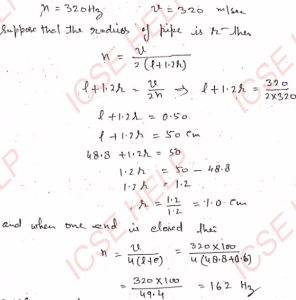 n = 320 Hz v = 320 m/sec
Suppose that the radius of pipe is r then
n = v / 2(l+1.2r)
l+1.2r = v/2n ⇒ l+1.2r = 320/2×320
l+1.2r = 0.50
l+1.2r = 50 cm
48.8 +1.2r = 50
1.2r = 50 - 48.8
1.2r = 1.2
r = 1.2/1.2 = 1.0 cm
and when one end is closed then
n = v/4(l+e) = 320×100/4(48.8+0.6)
= 320×100/49.4 = 162 Hz
ICSE HELP
ICSE HELP
ICSE HELP